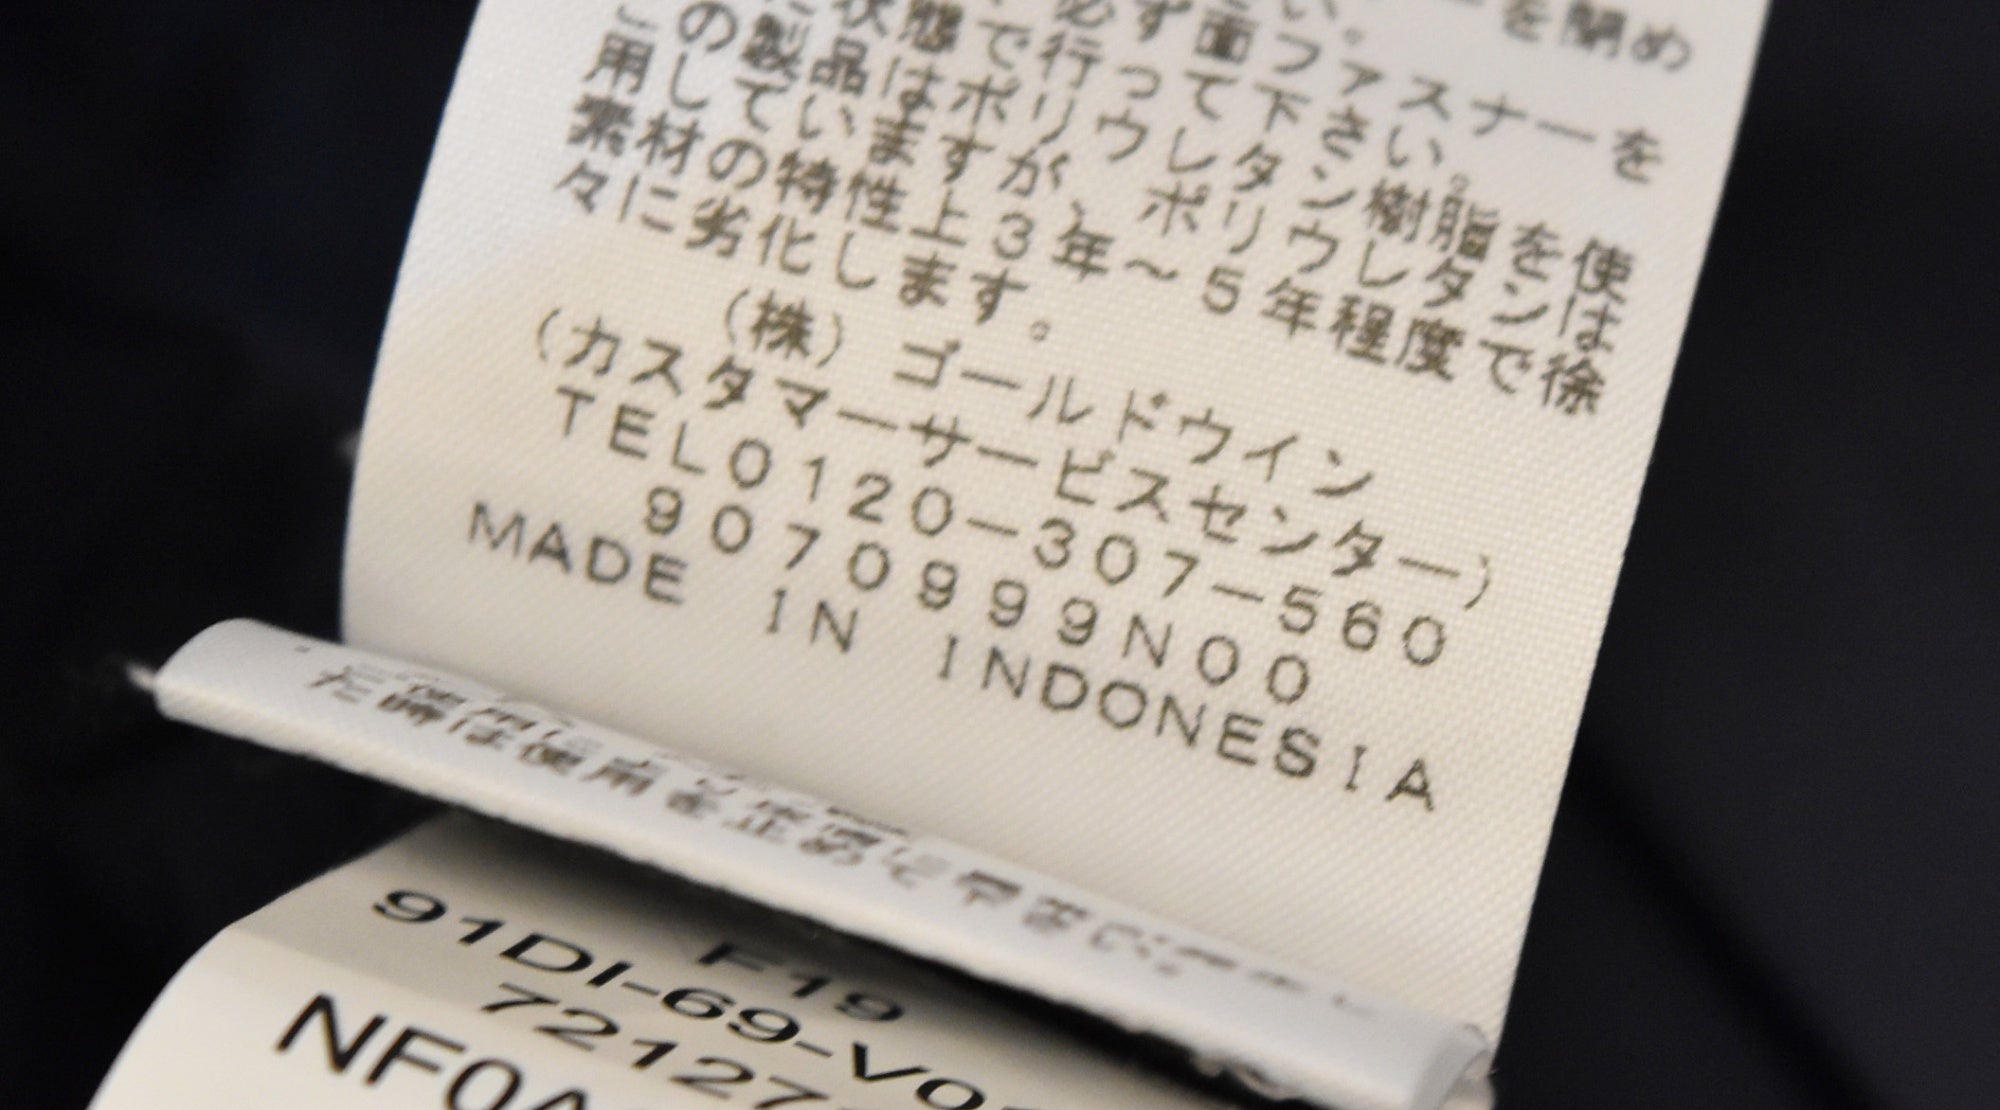 ーを閉め
必ず面ファスナーを
状態で行って下さい。
この製品はポリウレタン樹脂を使
用していますが、ポリウレタンは
素材の特性上３年～５年程度で徐
々に劣化します。
(株)ゴールドウイン
(カスタマーサービスセンター)
TEL0120-307-560
9070999N00
MADE IN INDONESIA
た時は使用を止めて
F19
91DI-69-V0
72127
NF0A